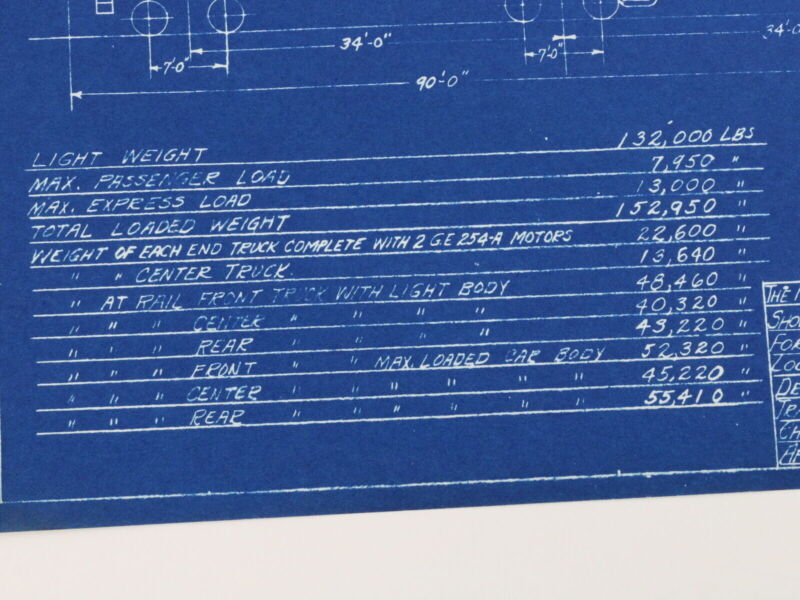 34'-0"
34'-0
7'-0"
7'-0"
90'-0"
LIGHT WEIGHT 132,000 LBS
MAX. PASSENGER LOAD 7,950 "
MAX. EXPRESS LOAD 13,000 "
TOTAL LOADED WEIGHT 152,950 "
WEIGHT OF EACH END TRUCK COMPLETE WITH 2 GE 254-A MOTORS 22,600 "
" " CENTER TRUCK " 13,640 "
" AT RAIL FRONT TRUCK WITH LIGHT BODY 48,460 "
" " " CENTER " " " " 40,320 "
" " " REAR " " " " 43,220 "
" " " FRONT " " MAX. LOADED CAR BODY 52,320 "
" " " CENTER " " " " " " 45,220 "
" " " REAR " " " " " " 55,410 "
THE